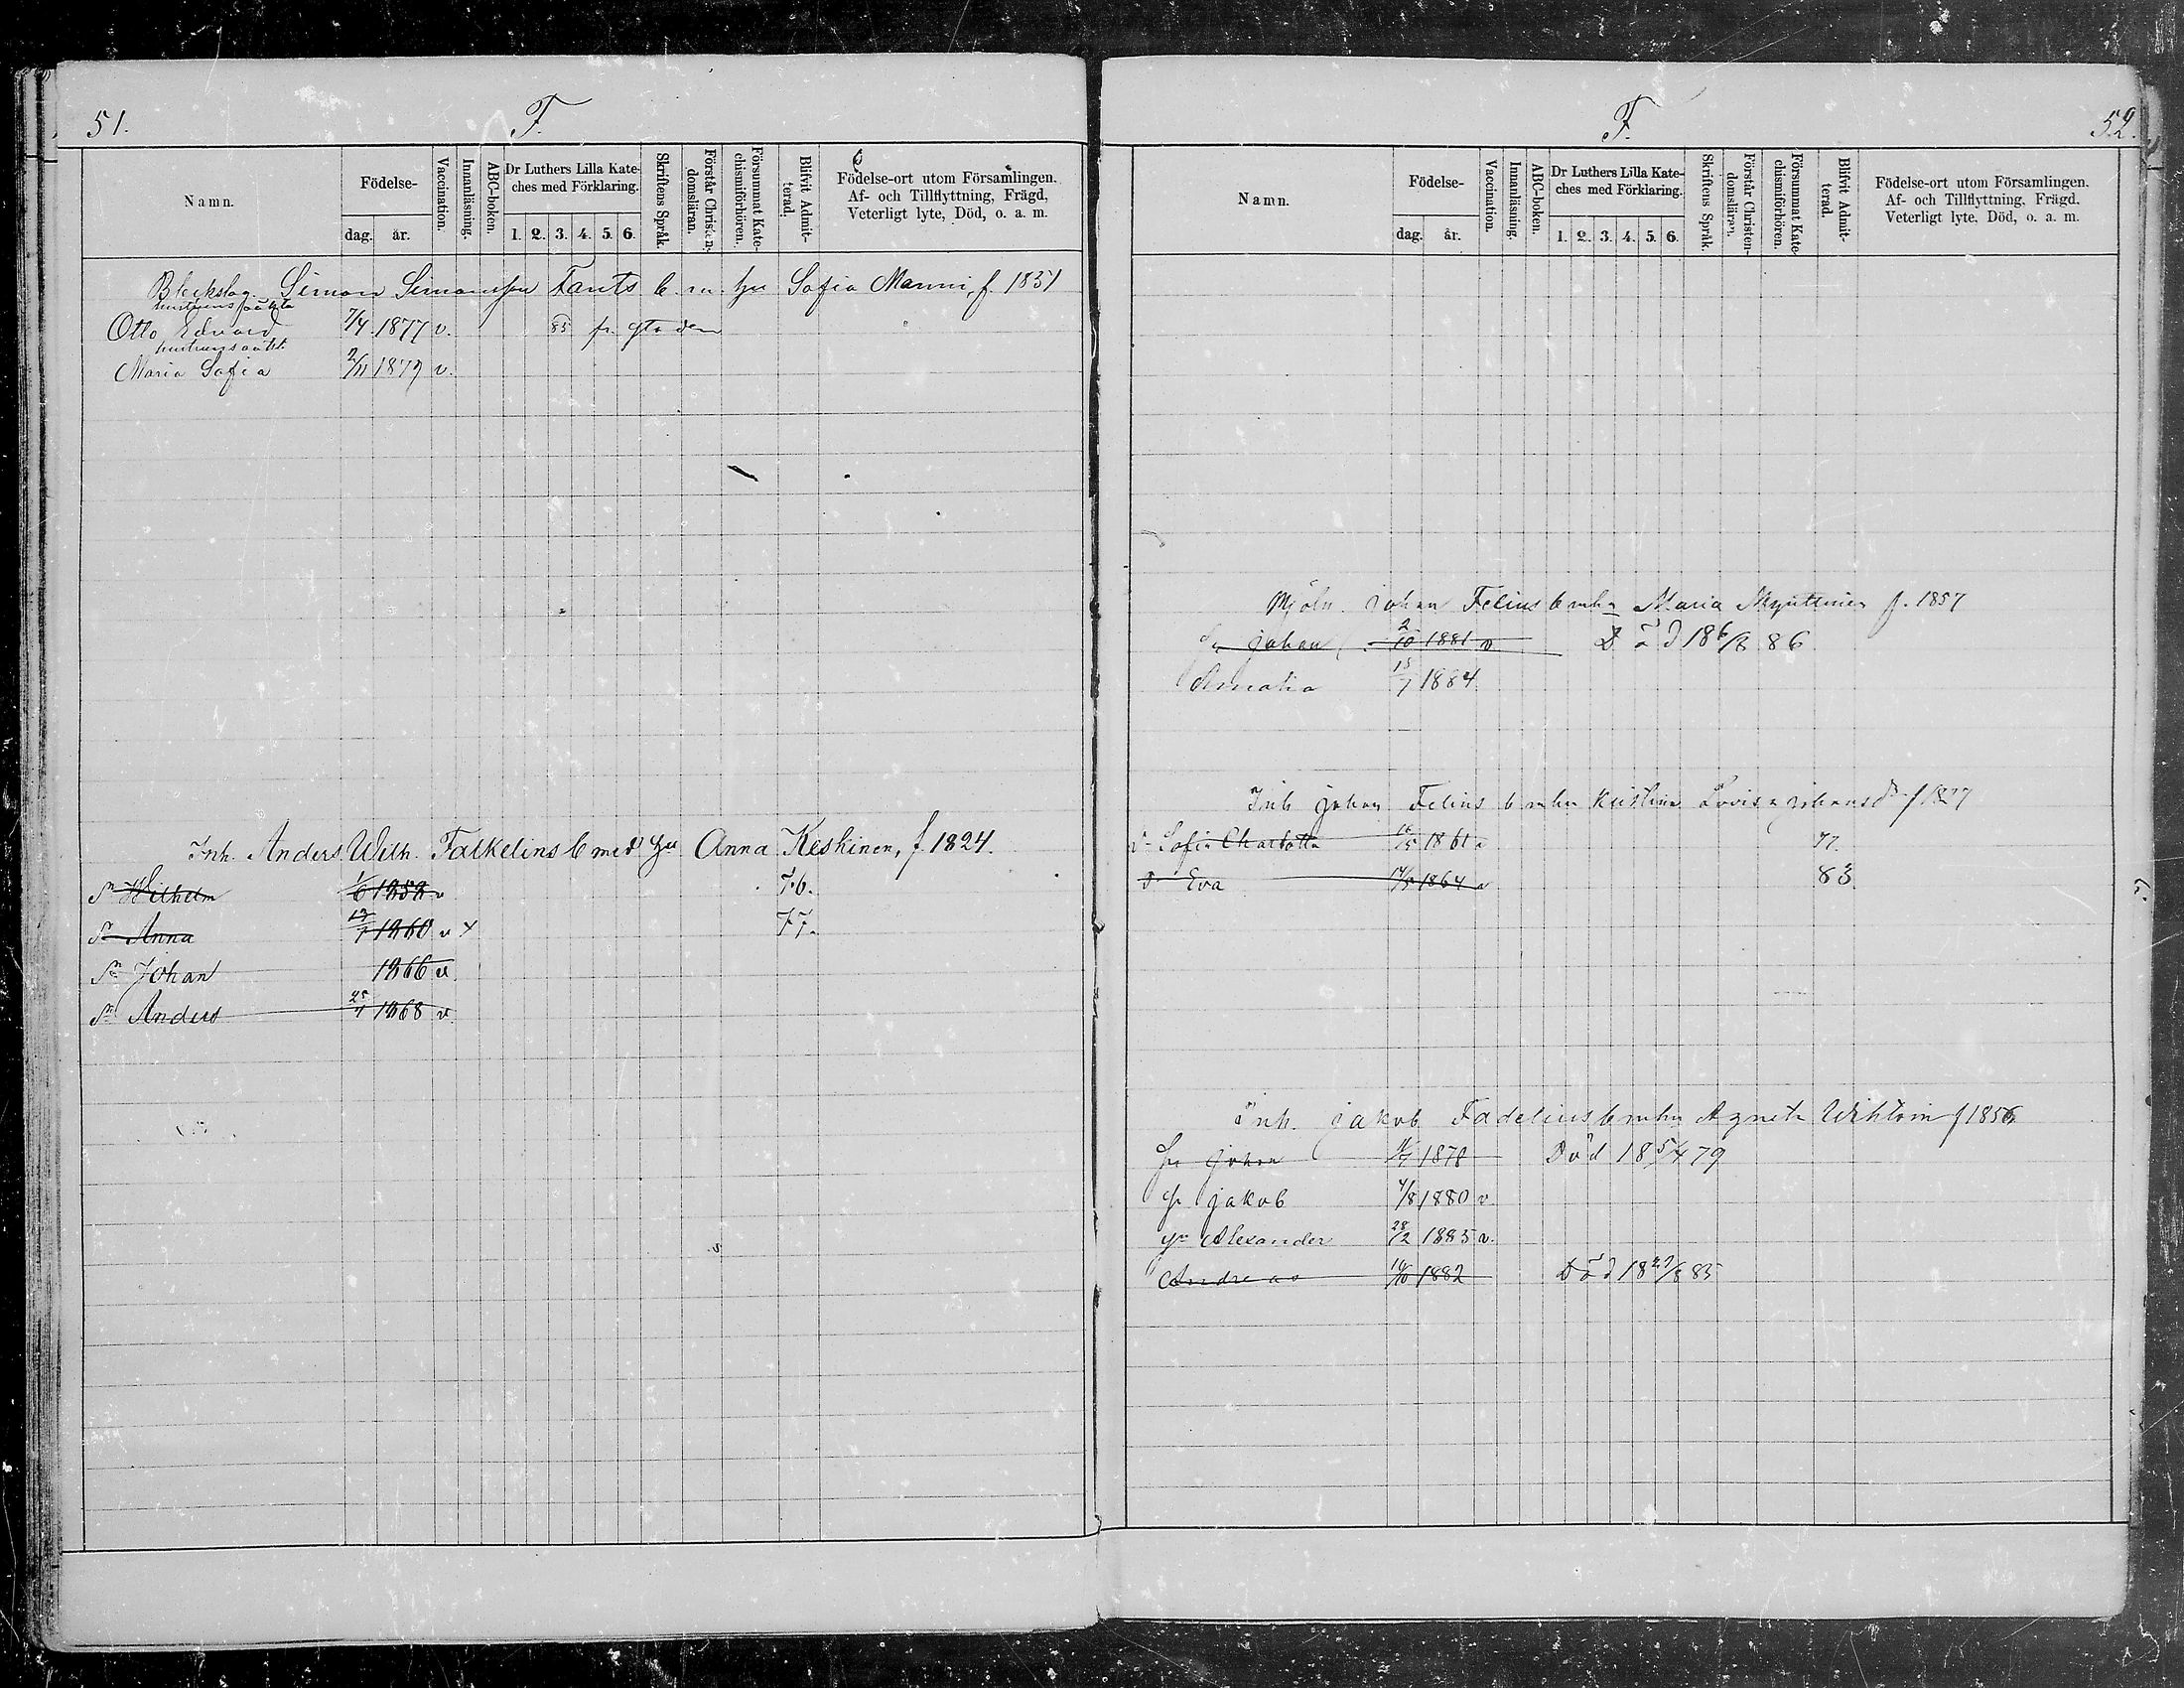 51.
F.
Namn.
Födelse-
dag.
år.
Vaccination.
Innanläsning.
ABC-boken.
Dr Luthers Lilla Kate-
ches med Förklaring.
1. 2. 3. 4. 5. 6.
Skriftens Språk.
Förstår Christen-
domsläran.
Försummat Kate-
chismiförhören.
Blifvit Admit-
terad.
Födelse-ort utom Församlingen.
Af- och Tillflyttning, Frägd,
Veterligt lyte, Död, o. a. m.
Blekslag. Simon Simonsson Fants b. m. hu Sofia Manni, f. 1831
hustruns oäkta
Otto Edvard 7/4 1877 v. 85
hustruns oäkt.
Maria Sofia 2/11 1879 v.
Inh. Anders Wilh. Falkelius b med hu Anna Keskinen, f. 1824.
Sn Wilhelm 1/6 1858 v 76.
Anna 1860 v x 77.
Sn Johan 1866 v.
Sn Anders 25/1 1868 v.
F.
52.
Namn.
Födelse-
dag.
år.
Vaccination.
Innanläsning.
ABC-boken.
Dr Luthers Lilla Kate-
ches med Förklaring.
1. 2. 3. 4. 5. 6.
Skriftens Språk.
Förstår Christen-
domsläran.
Försummat Kate-
chismiförhören.
Blifvit Admit-
terad.
Födelse-ort utom Församlingen.
Af- och Tillflyttning, Frägd,
Veterligt lyte, Död, o. a. m.
Mjöln. Johan Felius b m hu Maria Myuttinen f. 1857
Sn Johan 2/10 1881 v Död 18 6/8 86
Amalia 15/7 1884
Inh Johan Felius b m hu Kristina Lovisa Johansdr f 1827
dr Sofia Charlotta 16/5 1861 v 77.
dr Eva 1864 v 83.
Inh. Jakob Fadelius b m hu Agneta Wihtoin f 1856
Sn Johan 1878 Död 18 5/4 79
Sn Jakob 4/8 1880 v
Sn Alexander 28/2 1885 v.
Andreas 14/10 1882 Död 18 27/8 85